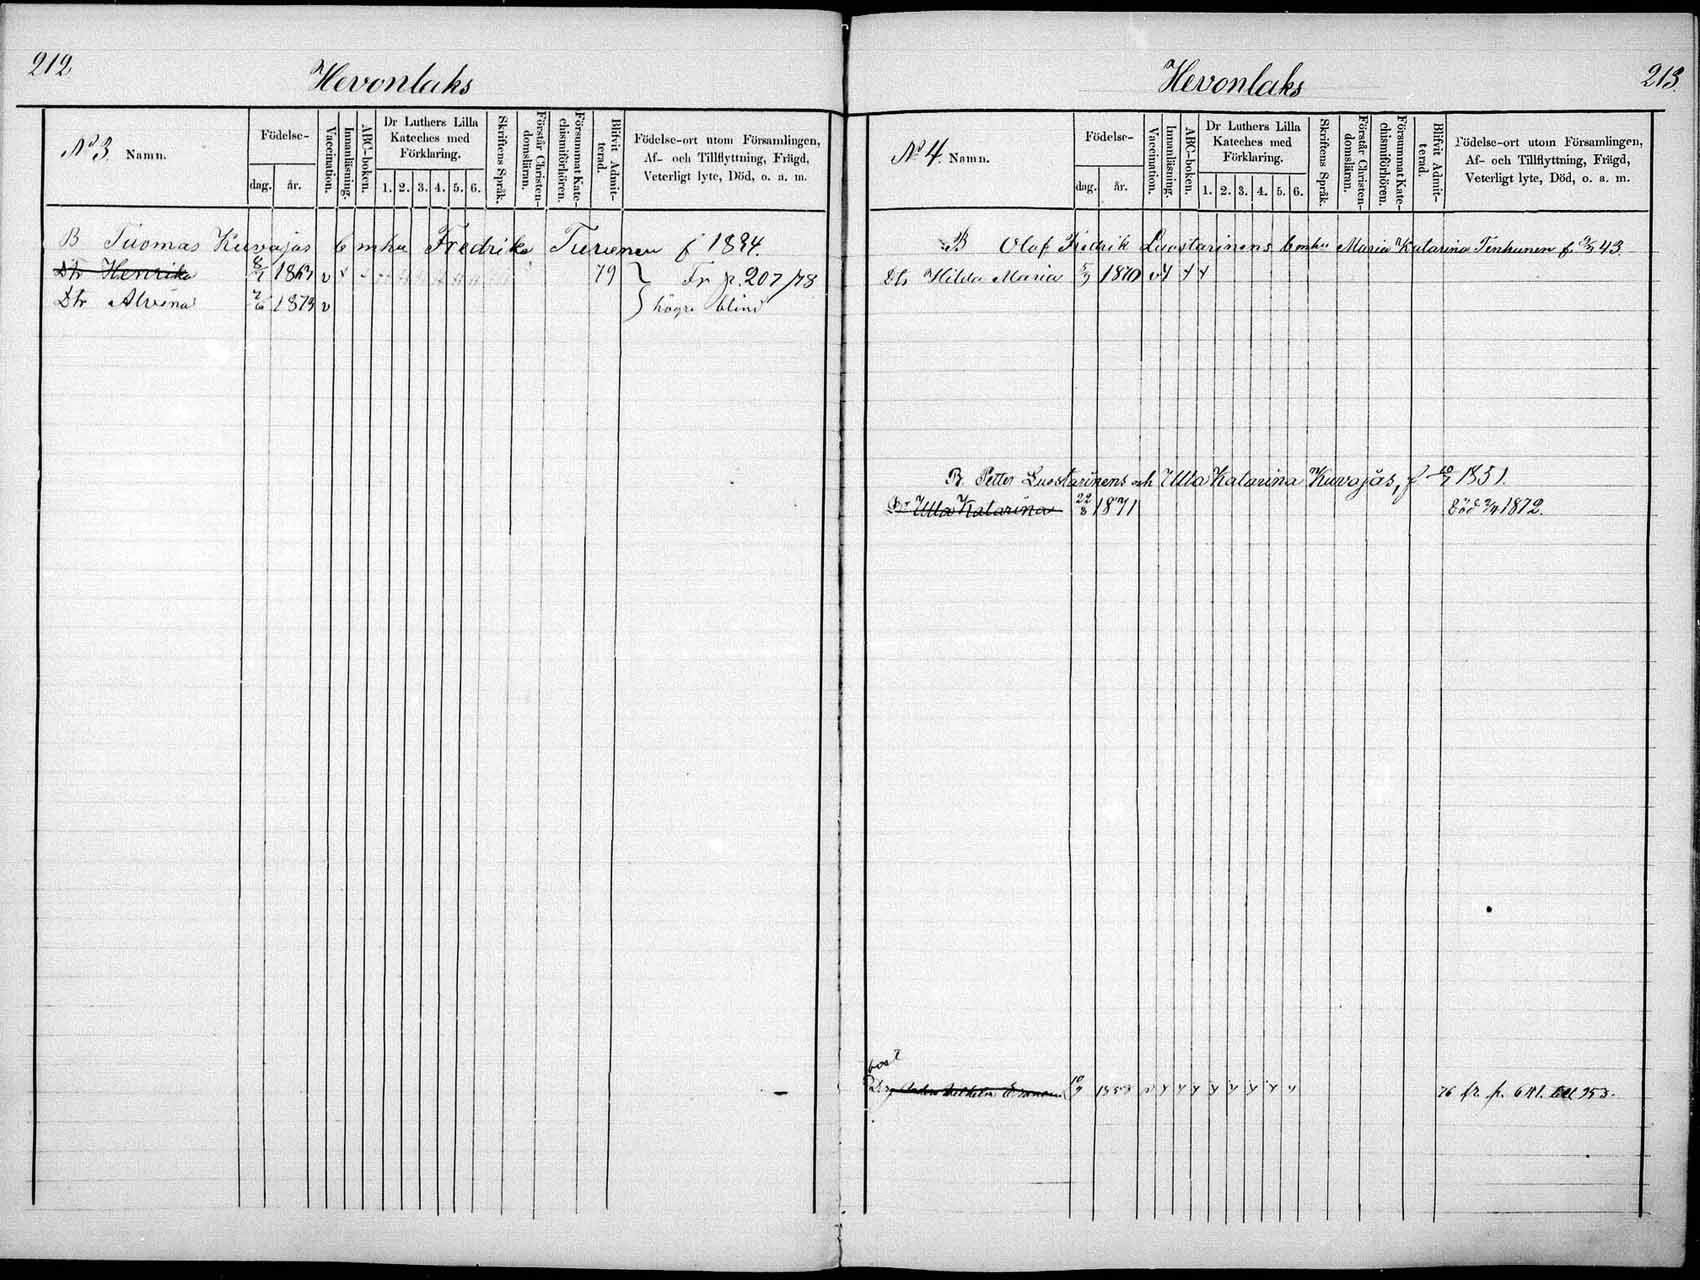 212
Hevonlaks
Nº 3. Namn.
Födelse-
dag. år.
Vaccination.
Innanläsning.
ABC-boken.
Dr Luthers Lilla
Kateches med
Förklaring.
1. 2. 3. 4. 5. 6.
Skriftens Språk.
Förstår Christen-
domsläran.
Försummat Kate-
chismiförhören.
Blifvit Admit-
terad.
Födelse-ort utom Församlingen,
Af- och Tillflyttning, Frägd,
Veterligt lyte, Död, o. a. m.
B Tuomas Kuvajas Fredrika Turunen f 1834.
Dtr Henrika 1863 v 79 Fr p. 207/78
Dtr Alvina 1873 v högra blind
Hevonlaks
213.
Nº 4. Namn.
Födelse-
dag. år.
Vaccination.
Innanläsning.
ABC-boken.
Dr Luthers Lilla
Kateches med
Förklaring.
1. 2. 3. 4. 5. 6.
Skriftens Språk.
Förstår Christen-
domsläran.
Försummat Kate-
chismiförhören.
Blifvit Admit-
terad.
Födelse-ort utom Församlingen,
Af- och Tillflyttning, Frägd,
Veterligt lyte, Död, o. a. m.
B Olof Fredrik Luostarinens Enka Maria Katarina Tenhunen f 43.
Dtr Hilda Maria 5/9 1870
B. Petter Luostarinens och Ulla Katarina Kuvajas, f 10/7 1851.
Dr Ulla Katarina 22/8 1871 Död 1872.
76 fr. p. 681. till 353.